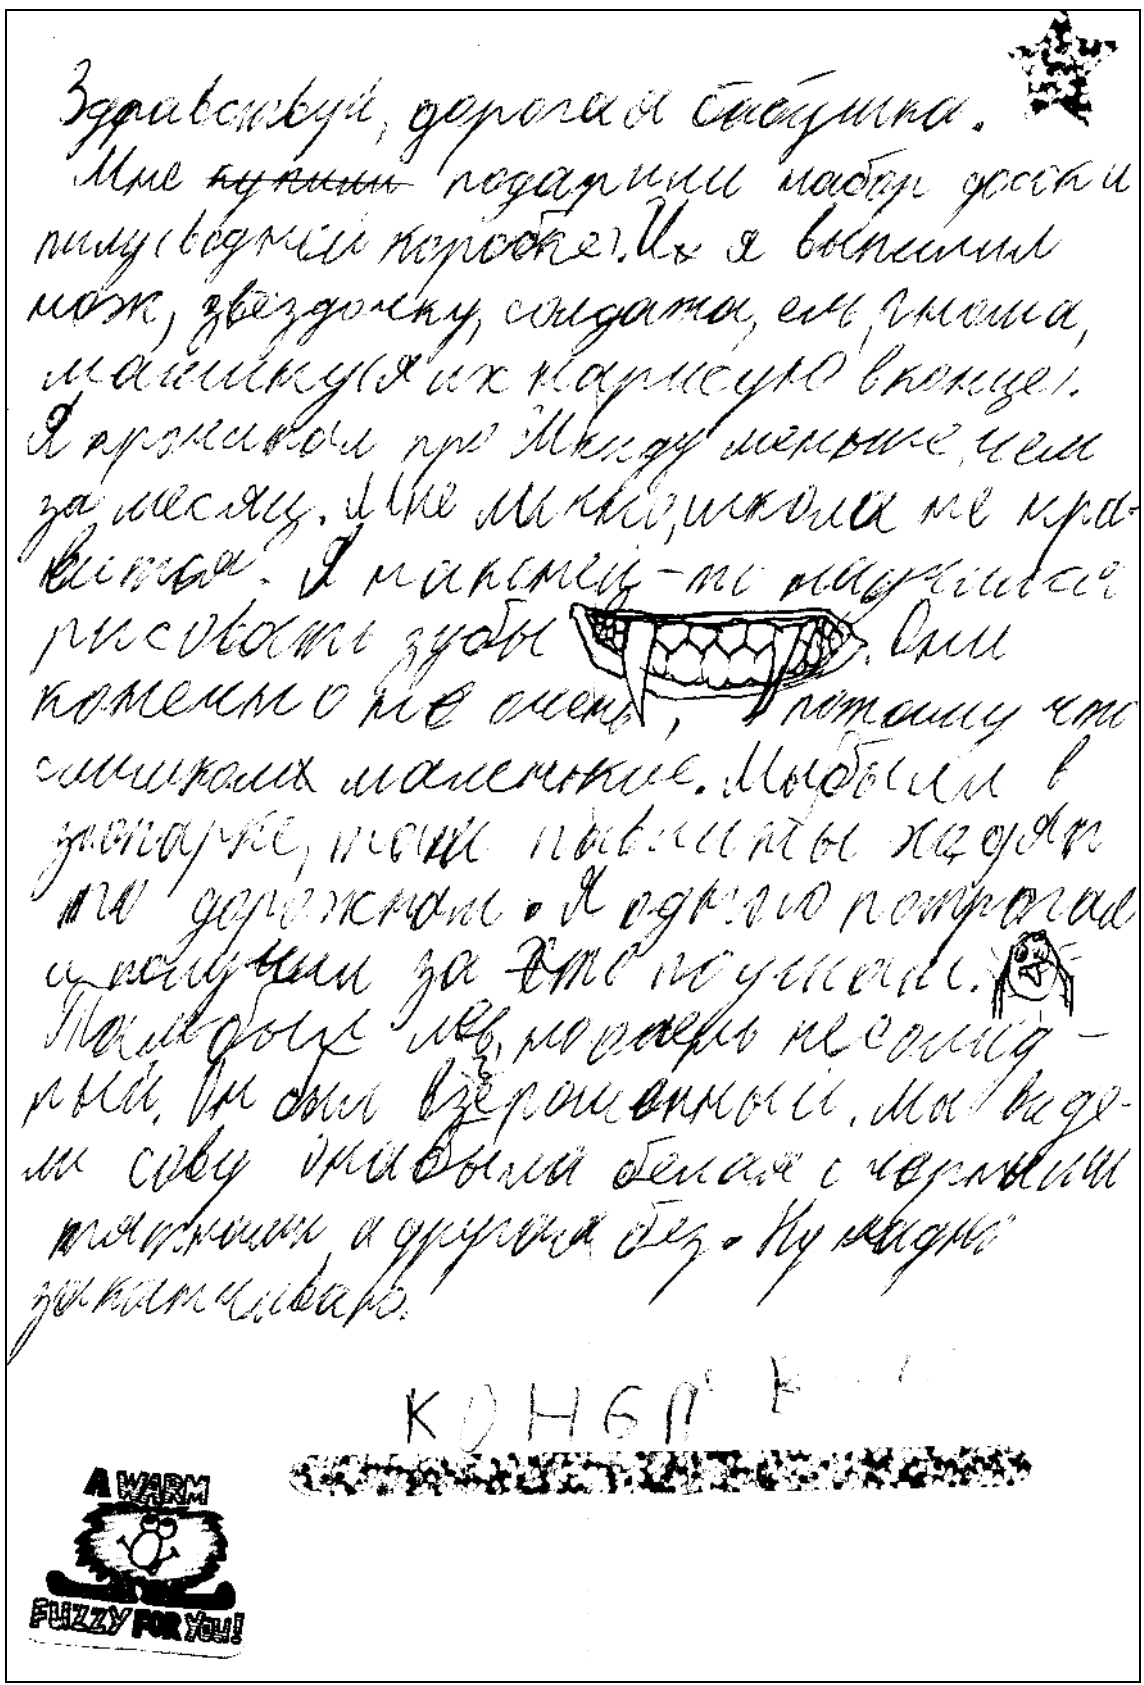 Здравствуй, дорогая бабушка.
Мне купили подарили набор доски и
пилу (в одной коробке). Их я выпилил
нож, звёздочку, солдата, ель, гнома,
машинку (я их нарисую в конце).
Я прочитал про Момо меньше, чем
за месяц. Мне школа не нра-
вится. Я наконец-то научился
рисовать зубы . Они
конечно не очень, потому что
слишком маленькие. Мы были в
зоопарке, там павлины ходят
по дорожкам. Я одного потрогал
и получил за это по ушам.
Там был лев, теперь не солид-
ный. Он был взъерошенный. Мы виде-
ли сову она была белая с чёрными
пятнами, а другая без. Ну ладно
закатчиваю.
КОНЕЦ
A WARM
FUZZY FOR YOU!